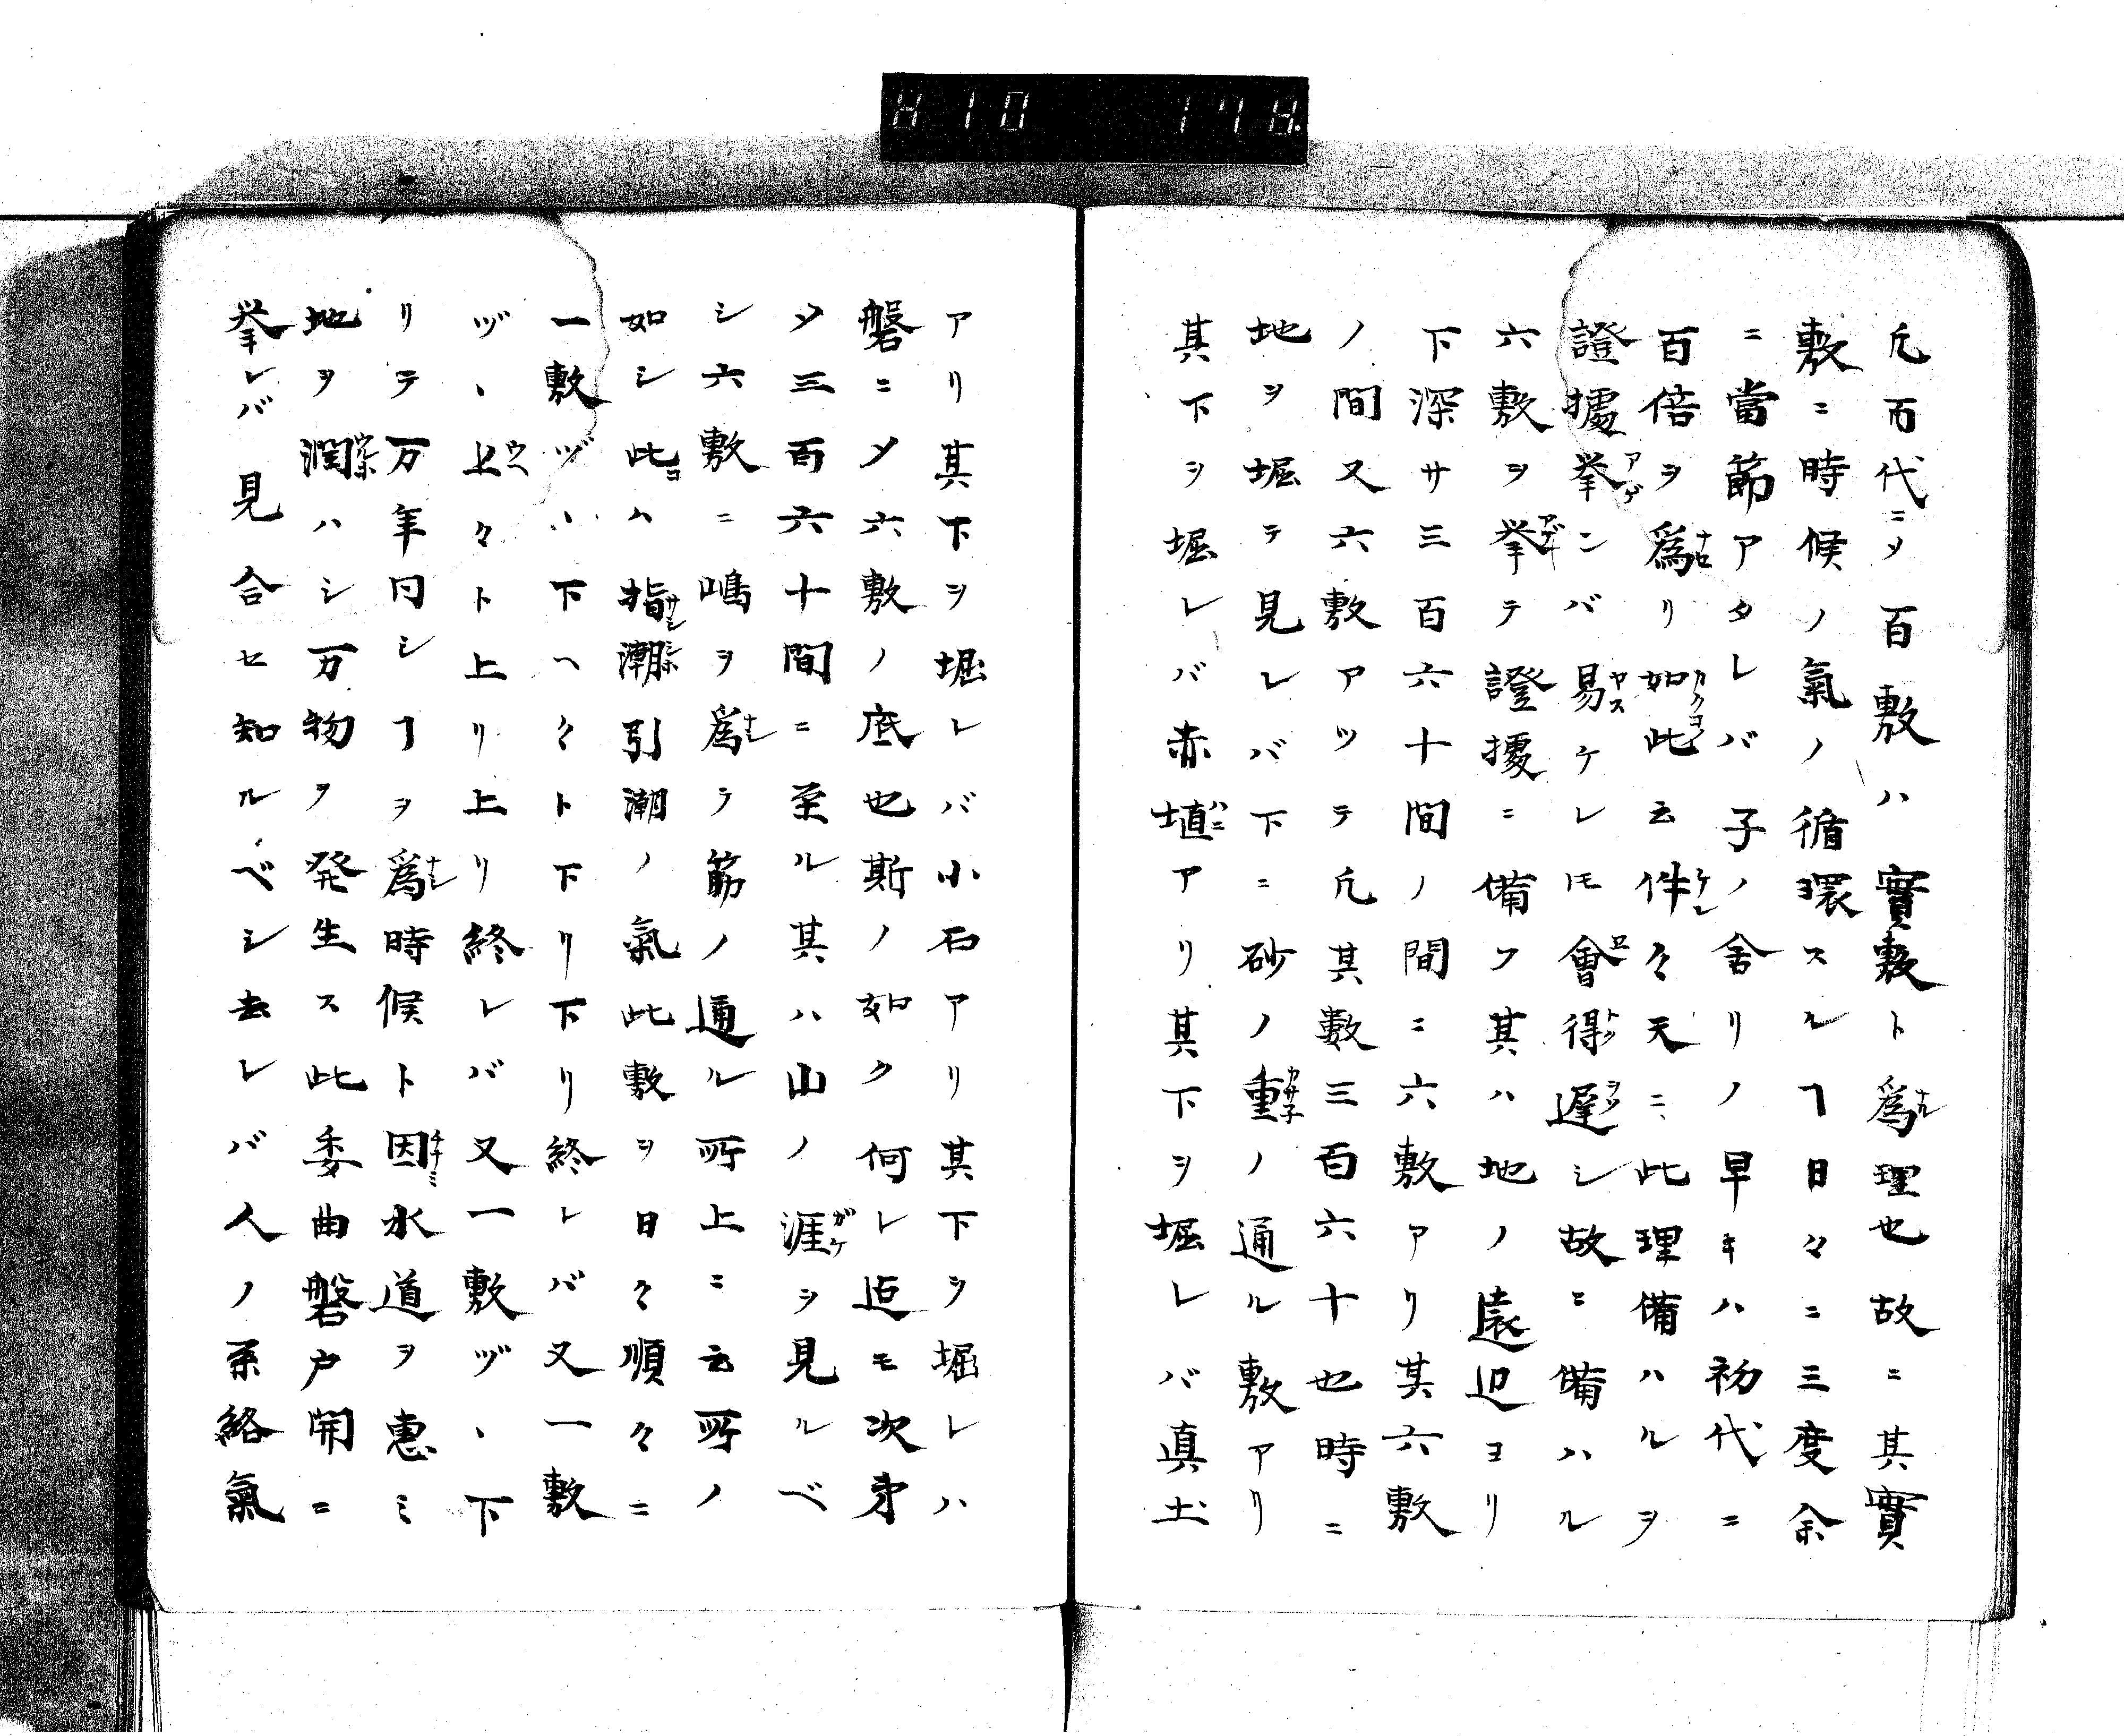 凢百代ニ〆百敷ハ實敷ト爲理也故ニ其實
敷ニ時候ノ氣ノ循環スルヿ日々ニ三度余
ニ當節アタレバ子ノ舍リノ早キハ初代ニ
百倍ヲ爲リ如此云件々天ニ此理備ハルヲ
證據挙ンバ易ケレモ會得遅シ故ニ備ハル
六敷ヲ挙テ證擾ニ備フ其ハ地ノ遠迎ヨリ
下深サ三百六十間ノ間ニ六敷アリ其六敷
ノ間又六敷アツテ凢其數三百六十也時ニ
地ヲ堀テ見レバ下ニ砂ノ重ノ通ル敷アリ
其下ヲ堀レバ赤埴アリ其下ヲ堀レバ真土
アリ其下ヲ堀レバ小石アリ其下ヲ堀レハ
磐ニ〆六敷ノ底也斯ノ如ク何レ迠モ次㐧
〆三百六十間ニ至ル其ハ山ノ涯ヲ見ルベ
シ六敷ニ嶋ヲ爲ラ筋ノ通ル所上ニ云所ノ
如シ此ハ指潮引潮ノ氣此敷ヲ日々順々ニ
一敷ヅヽ下ヘ々ト下リ下リ終レバ又一敷
ヅヽ上々ト上リ上リ終レバ又一敷ヅヽ下
リテ万年同シヿヲ爲時候ト因水道ヲ恵ミ
地ヲ潤ハシ万物ヲ発生ス此委曲磐戸開ニ
挙レバ見合セ知ルベシ去レバ人ノ系絡氣
810 178